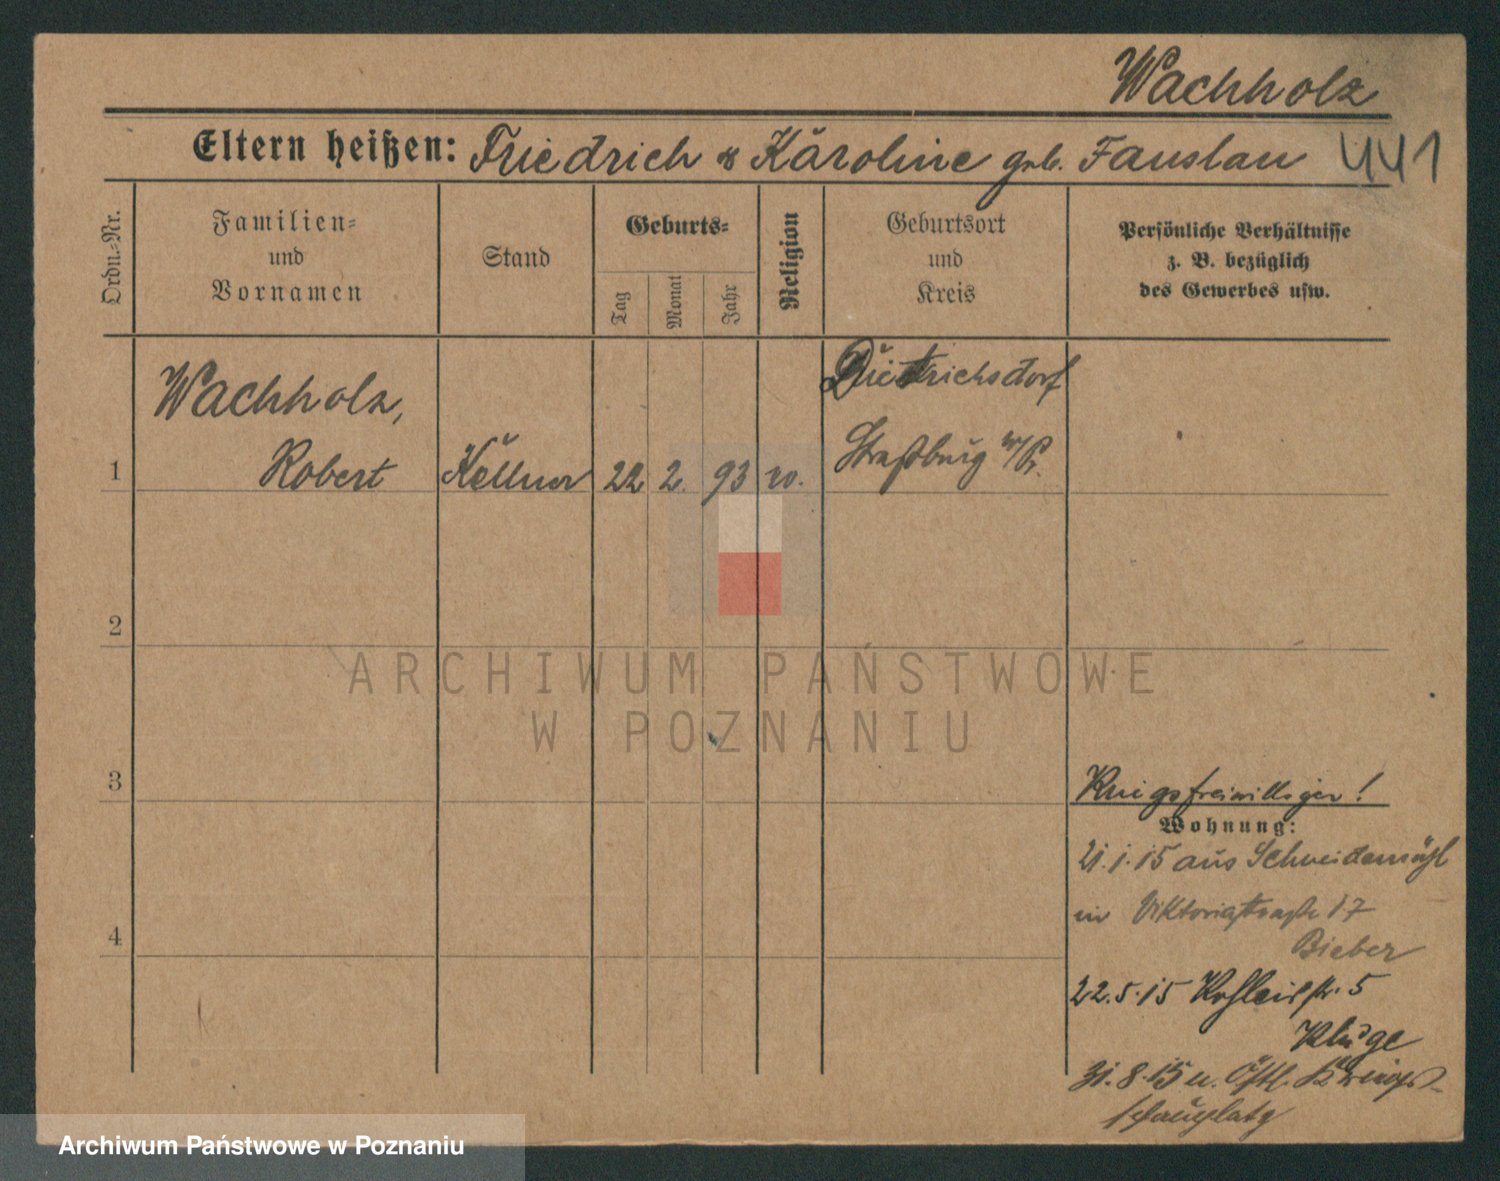 Wachholz
Eltern heißen: Friedrich & Karoline geb. Fauslau 441
Ordn.-Nr.
Familien-
und
Vornamen
Stand
Geburts-
Tag
Monat
Jahr
Religion
Geburtsort
und
Kreis
Persönliche Verhältnisse
z. B. bezüglich
des Gewerbes usw.
Dietrichsdorf
Wachholz,
1 Robert Kellner 22 2. 93 Straßburg W/Pr.
2
3
4
Kriegsfreiwilliger!
Wohnung:
21.1.15 aus Schneidemühl
in Viktoriastraße 17
Bieber
22.5.15 str. 5
Kluge
31.8.15 n. Östl. Kriegs-
schauplatz
ARCHIWUM PAŃSTWOWE
W POZNANIU
Archiwum Państwowe w Poznaniu